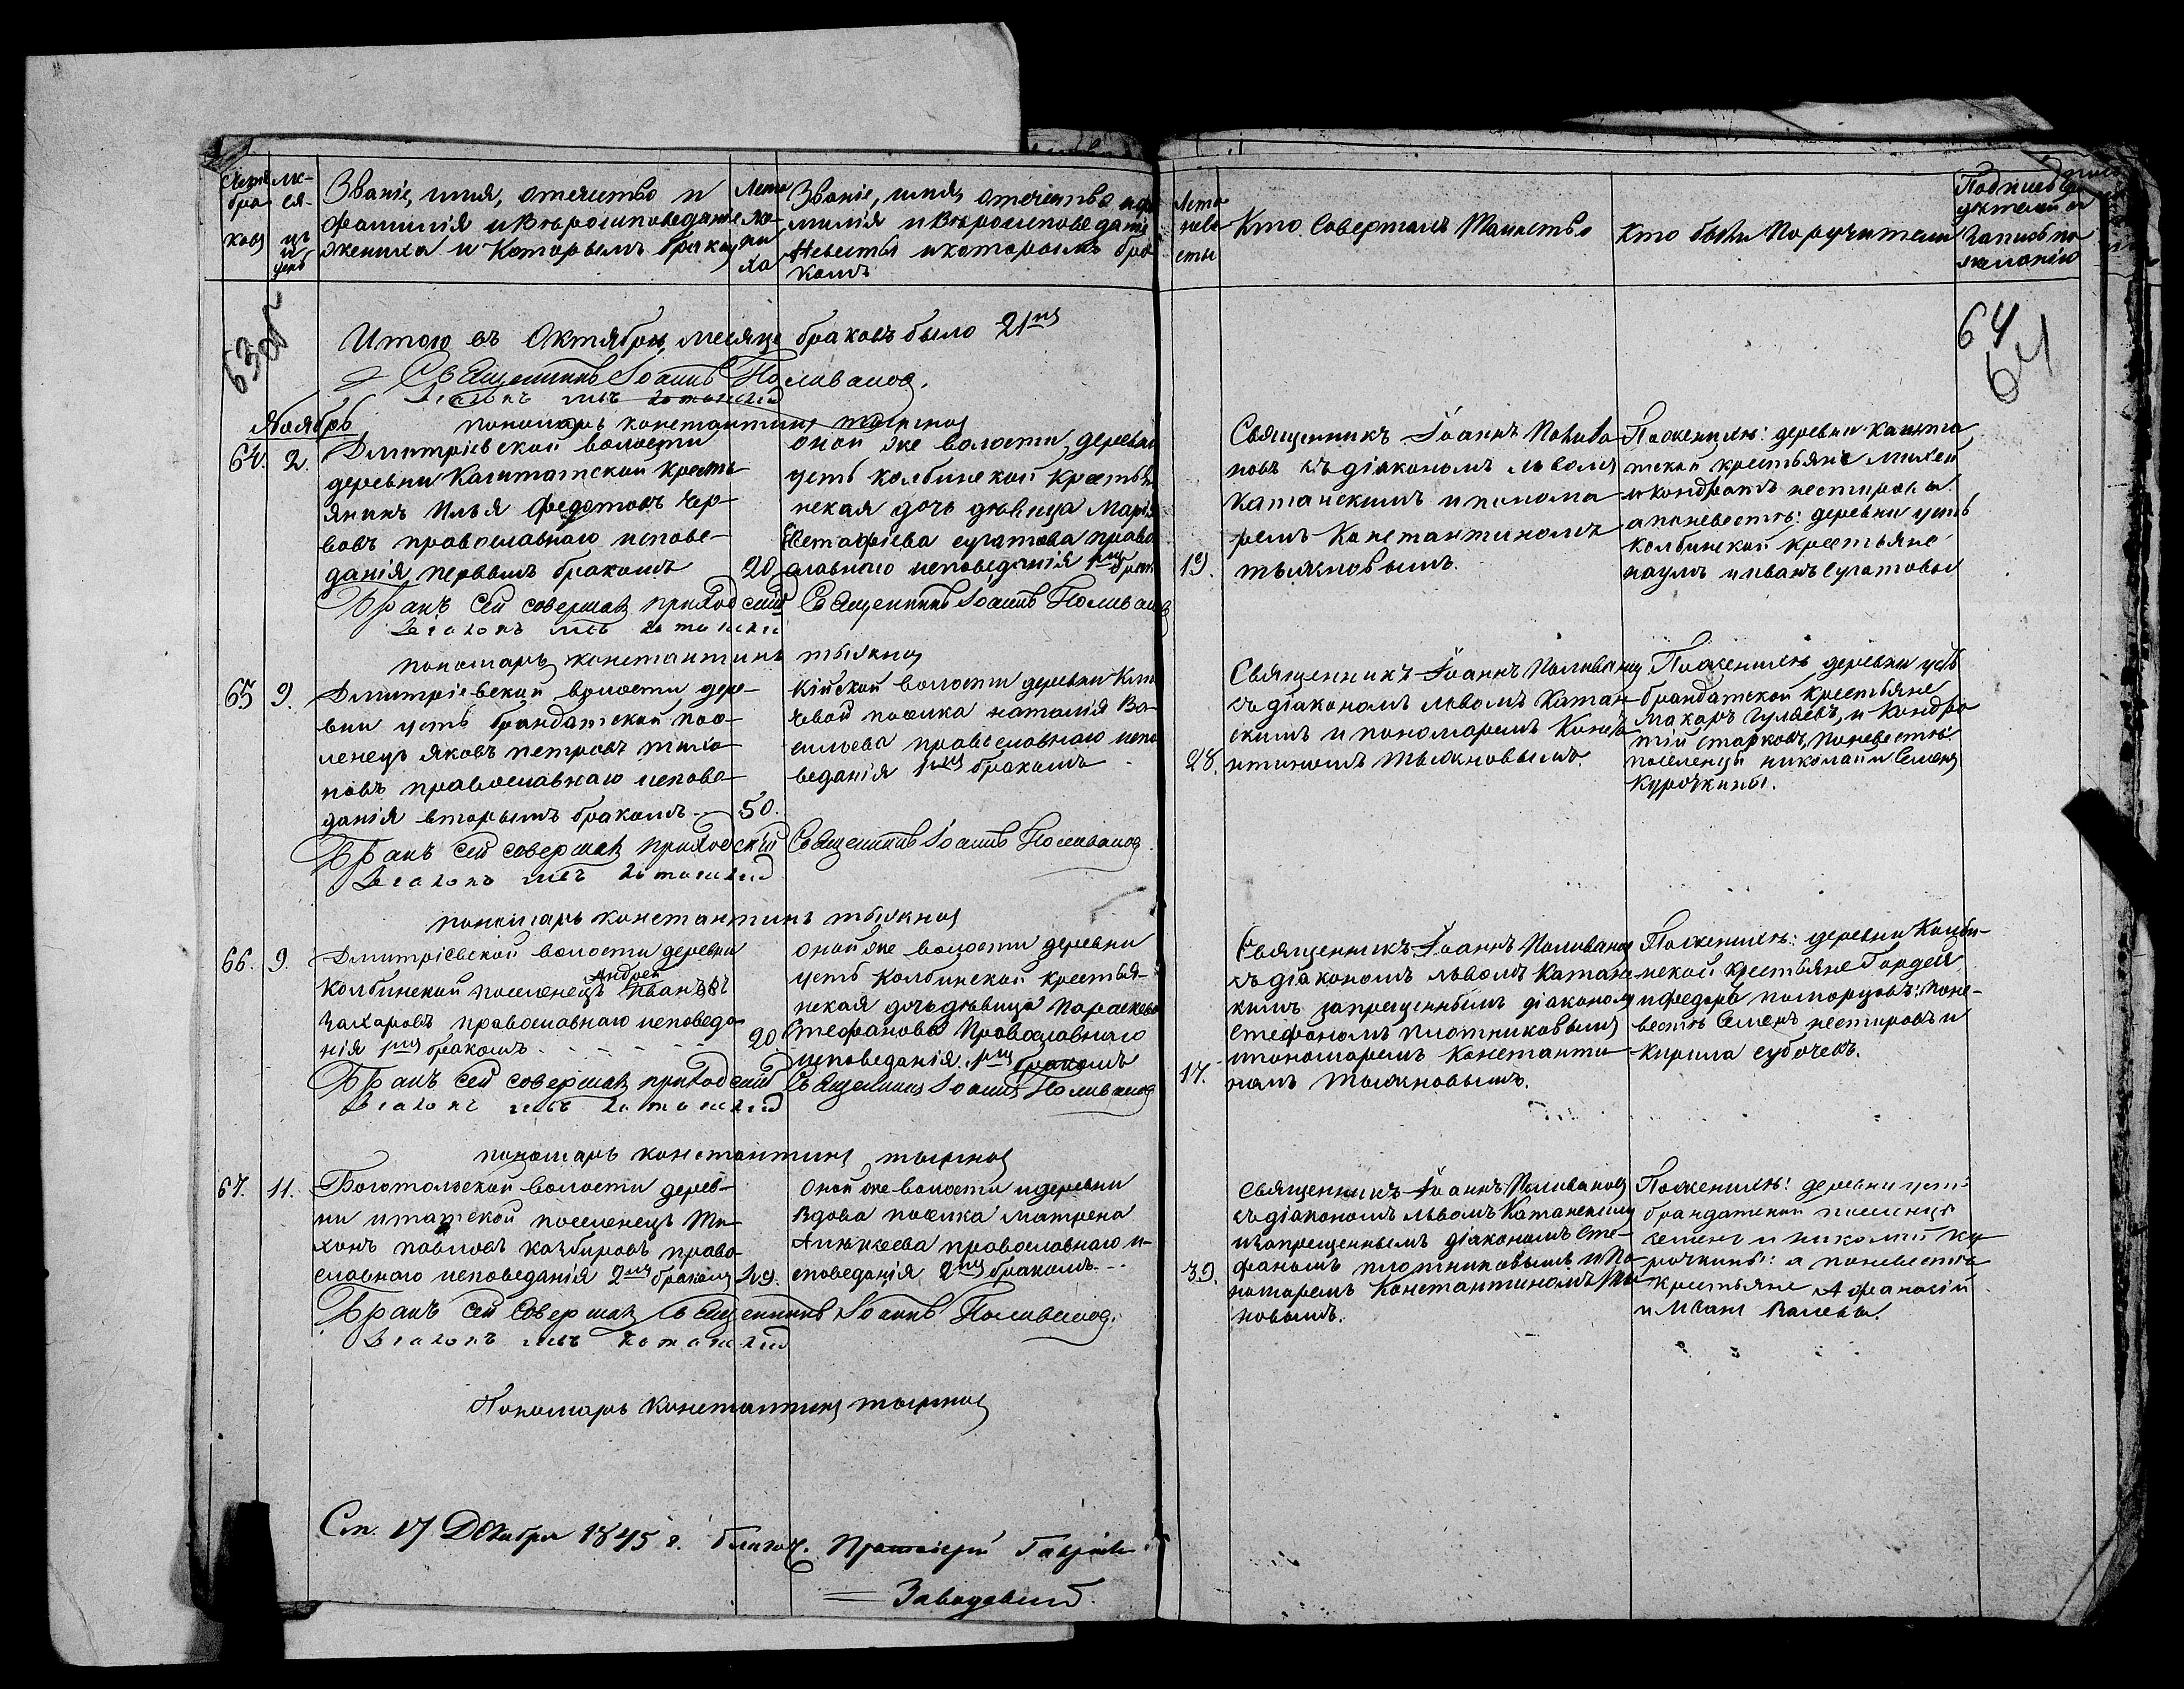 Звание, имя, отечество и
фамилія и вероисповедание
жениха и которымъ бракомъ
Лета
же-
ни
ха
Звание, имя, отечество и фа
милія и вероисповедание
невесты и которымъ бра
комъ
Лета
неве
сты
Кто совершалъ таинство
Кто были поручители
Подпись сви
детелей
запись по
желанію
63об
64
64
Итого въ Октябрѣ месяце браковъ было 21нъ
Священникъ Іоаннъ Поливановъ.
Діаконъ Левъ Катанскій
пономарь константинъ тыжновъ
Ноябрь
64. 2.
Дмитріевской волости
деревни Каштатской кресть
янинъ Илья Федотовъ чер-
вовъ православнаго испове-
данія, первымъ бракомъ
20
оной же волости деревни
усть колбинской крестья
нская дочь девица Марія
Евстафіева сугатова право
славного исповеданія 1мъ брак
19.
Священникъ Іоаннъ Полива
новъ съ діакономъ львомъ
Катанскимъ и понома
ремъ Константиномъ
тыжновымъ.
По женихѣ: деревни кашта
тской крестьяне михей
и кондратъ нестировы
а по невестѣ: деревни усть
колбинской крестьяне
наумъ и иванъ сугатовы
Бракъ сей совершалъ приходскій Священникъ Іоаннъ Поливановъ
Діаконъ Левъ Катанскій
пономарь константинъ тыжновъ
65 9.
Дмитріевской волости дере-
вни усть брандатской посе-
ленецъ яковъ петровъ тиха
новъ православнаго испове-
данія вторымъ бракомъ
50.
Кійской волости деревни
човой поселка наталія Ва-
сильева православнаго испо
веданія 1мъ бракомъ
28.
Священникъ Іоаннъ Поливановъ
съ діакономъ львомъ Катан-
скимъ и пономаремъ Конста
нтиномъ Тыжновымъ.
По женихѣ деревни усть
брандатской крестьяне
Макаръ Гуляевъ, и Кондра
тій старковъ, по невестѣ
поселенцы николай и Семенъ
Курочкины.
Бракъ сей совершалъ приходскій Священникъ Іоаннъ Поливановъ
Діаконъ Левъ Катанскій
пономарь константинъ тыжновъ
66. 9.
Дмитріевской волости деревни
Андрей
колбинской поселенецъ Иванъ
Захаровъ православнаго исповеда
нія 1мъ бракомъ
20
оной же волости деревни
усть колбинской крестья-
нская дочь девица параскева
Стефанова Православнаго
исповеданія 1мъ бракомъ
17.
Священникъ Іоаннъ Поливановъ
съ діакономъ львомъ Катанс
кимъ запрещеннымъ діакономъ
Стефаномъ плотниковымъ
и пономаремъ Константи
номъ Тыжновымъ.
По женихѣ: деревни Колби-
нской крестьяне Гордей
и федоръ поморцовъ: по не-
вестѣ Семенъ нестировъ и
Кирила субочевъ.
Бракъ сей совершалъ приходскій Священникъ Іоаннъ Поливановъ
Діаконъ Левъ Катанскій
пономарь константинъ тыжновъ
67. 11.
Боготольской волости дерев-
ни итатской поселенецъ Ти
хонъ павловъ кочбировъ право-
славнаго исповеданія 2мъ бракомъ
49.
Оной же волости и деревни
Вдова поселка матрена
православнаго и-
споведанія 2мъ бракомъ
39.
Священникъ Іоаннъ Поливановъ
съ діакономъ львомъ Катанскимъ
и запрещеннымъ діакономъ Сте-
фаномъ плотниковымъ и по
номаремъ Константиномъ тыж
новымъ.
По женихѣ: деревни усть
брандатской поселенцы
семенъ и николай ку
рочкины: а по невестѣ
крестьяне Афанасій
и Иванъ
Бракъ сей совершалъ Священникъ Іоаннъ Поливановъ.
Діаконъ Левъ Катанскій
Пономарь константинъ тыжновъ
См. 17 Декабря 1845 г. благоч. Протоіерей Гавріилъ
Заводовскій